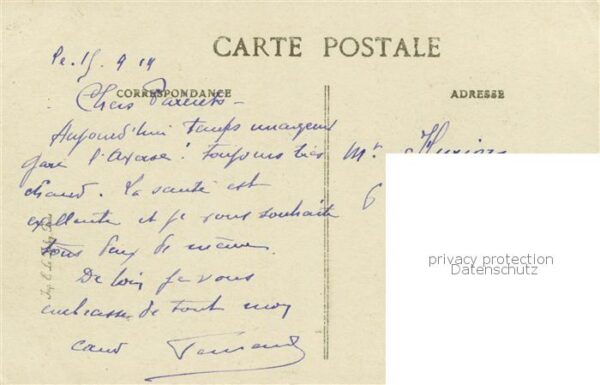 CARTE POSTALE
Le 15. 9 14
CORRESPONDANCE
ADRESSE
Chers Parents -
Aujourd'hui temps nuageux
gare l'averse! toujours très
chaud. La santé est
excellente et je vous souhaite
tous deux de même.
De loin je vous
embrasse de tout mon
cœur Fernand
Mr
privacy protection
Datenschutz